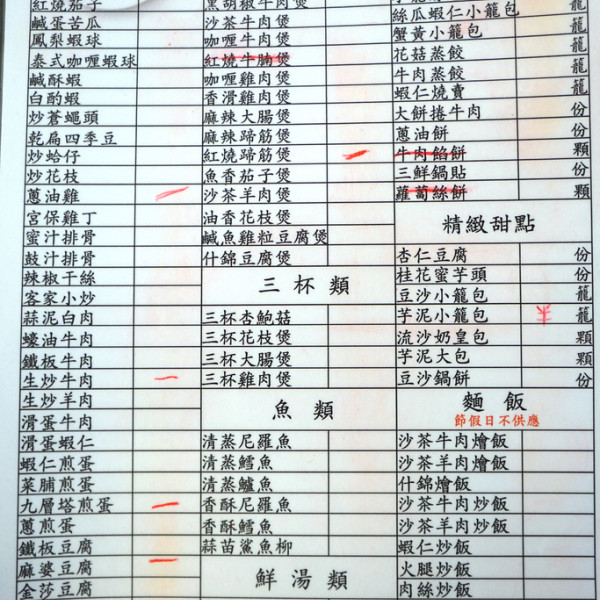 紅燒茄子
鹹蛋苦瓜
鳳梨蝦球
泰式咖喱蝦球
鹹酥蝦
白酌蝦
炒蒼蠅頭
乾扁四季豆
炒蛤仔
炒花枝
蔥油雞
宮保雞丁
蜜汁排骨
鼓汁排骨
辣椒干絲
客家小炒
蒜泥白肉
蠔油牛肉
鐵板牛肉
生炒牛肉 一
生炒羊肉
滑蛋牛肉
滑蛋蝦仁
蝦仁煎蛋
菜脯煎蛋
九層塔煎蛋 一
蔥煎蛋
鐵板豆腐
麻婆豆腐 一
金莎豆腐
黑胡椒牛肉煲
沙茶牛肉煲
咖喱牛肉煲
紅燒牛腩煲
咖喱雞肉煲
香滑雞肉煲
麻辣大腸煲
麻辣蹄筋煲
紅燒蹄筋煲 一
魚香茄子煲
沙茶羊肉煲
油香花枝煲
鹹魚雞粒豆腐煲
什錦豆腐煲
三杯類
三杯杏鮑菇
三杯花枝煲
三杯大腸煲
三杯雞肉煲
魚類
清蒸尼羅魚
清蒸鱈魚
清蒸鱸魚
香酥尼羅魚
香酥鱈魚
蒜苗鯊魚柳
鮮湯類
籠
絲瓜蝦仁小籠包 籠
蟹黃小籠包 籠
花菇蒸餃 籠
牛肉蒸餃 籠
蝦仁燒賣 籠
大餅捲牛肉 份
蔥油餅 份
牛肉餡餅 顆
三鮮鍋貼 份
蘿蔔絲餅 顆
精緻甜點
杏仁豆腐 份
桂花蜜芋頭 份
豆沙小籠包 籠
芋泥小籠包 籠
流沙奶皇包 顆
芋泥大包 顆
豆沙鍋餅 份
麵飯
節假日不供應
沙茶牛肉燴飯
沙茶羊肉燴飯
什錦燴飯
沙茶牛肉炒飯
沙茶羊肉炒飯
蝦仁炒飯
火腿炒飯
肉絲炒飯